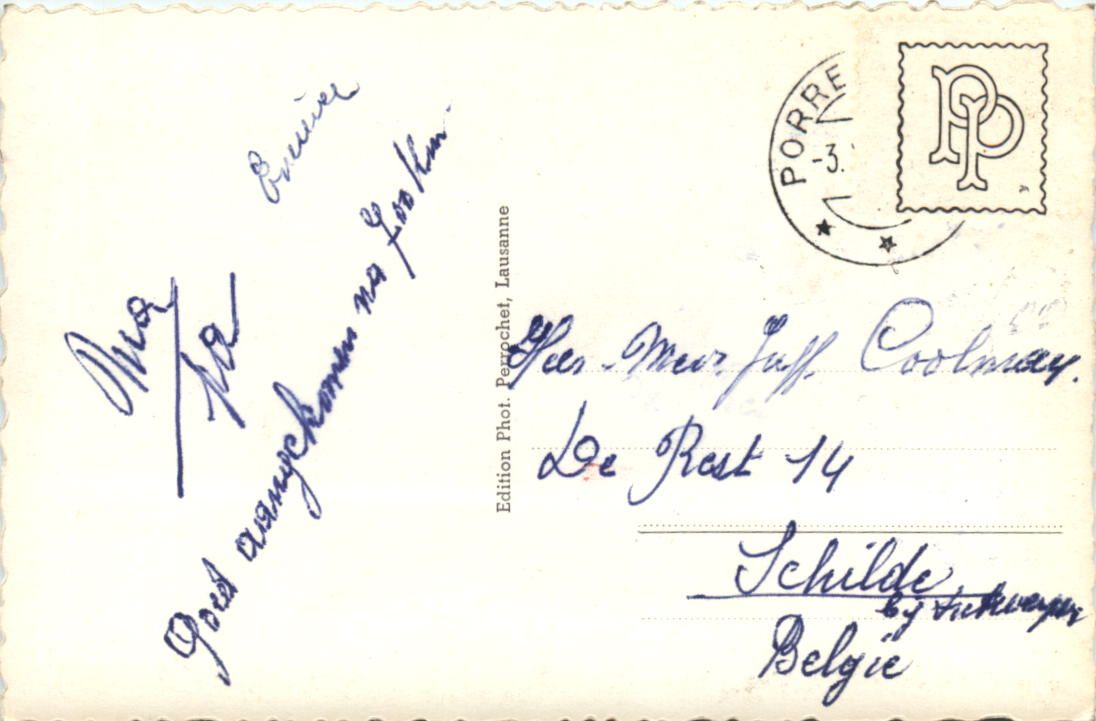 Goed aangekomen na 700 Km.
Ma
Pa
Edition Phot. Perrochet, Lausanne
PORRE
-3.
PP
Heer. Mevr. Juff. Coolman.
De Rest 14
Schilde
by Antwerpen
Belgie